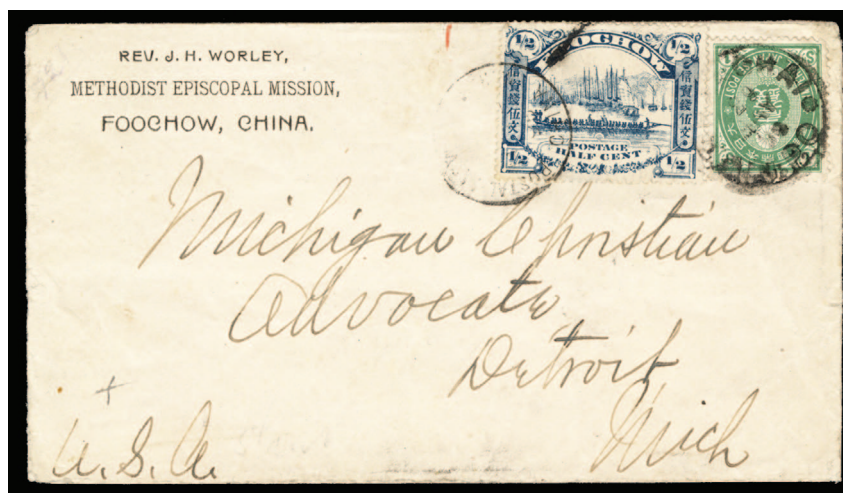 REV. J. H. WORLEY,
METHODIST EPISCOPAL MISSION,
FOOCHOW, CHINA.
1/2 1/2
FOOCHOW
信資錢伍文 信資錢伍文
POSTAGE
HALF CENT
1/2 1/2
POSTAL
Michigan Christian
Advocate
Detroit
Mich
U. S. A.